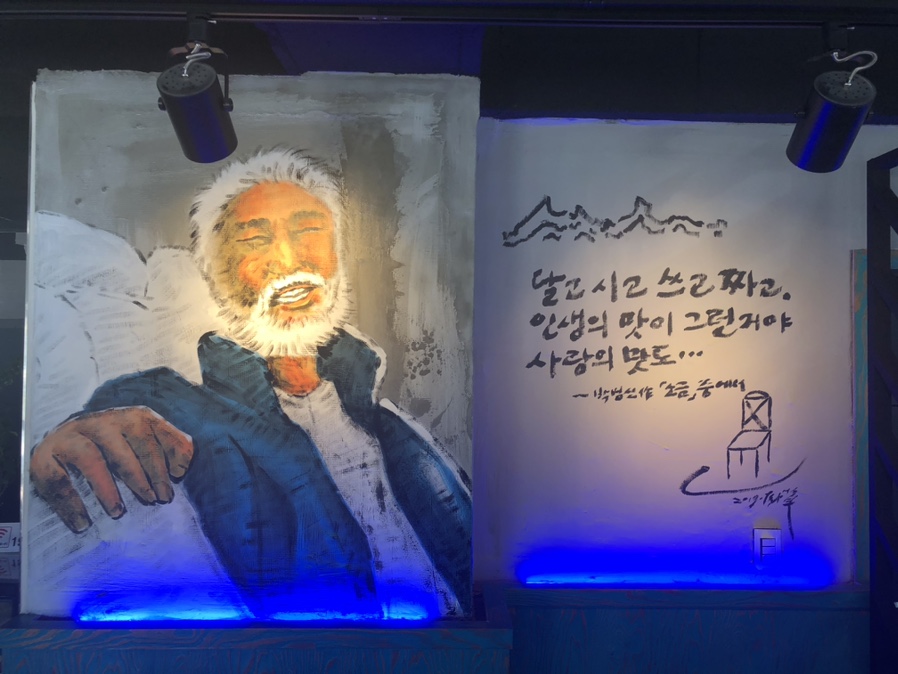 달고 시고 쓰고 짜고.
인생의 맛이 그런거야
사랑의 맛도...
~ 박범신 作 「소금」 중에서